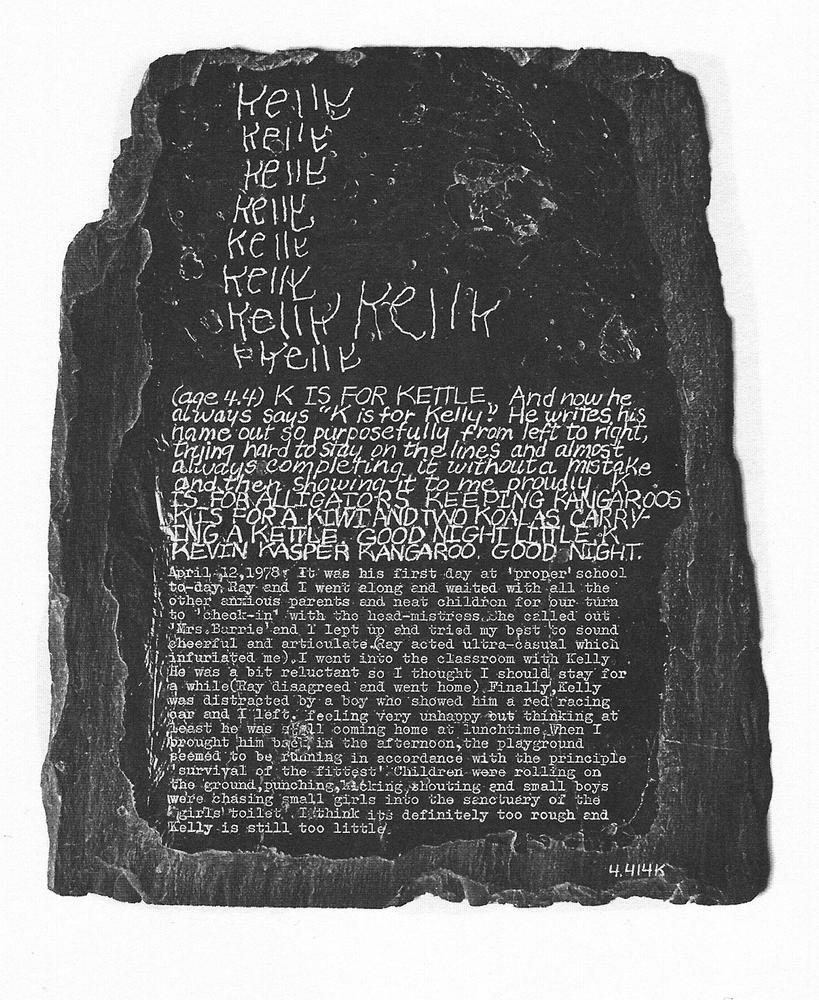 Kelly
Kelly
Kelly
Kelly
Kelly
Kelly
Kelly Kelly
Kelly
(age 4.4) K IS FOR KETTLE, And now he
always says "K is for Kelly." He writes his
name out so purposefully from left to right,
trying hard to stay on the lines and almost
always completing it without a mistake
and then showing it to me proudly. K
IS FOR ALLIGATORS KEEPING KANGAROOS
K IS FOR A KIWI AND TWO KOALAS CARRY-
ING A KETTLE. GOOD NIGHT LITTLE K
KEVIN KASPER KANGAROO. GOOD NIGHT.
April 12,1978: It was his first day at 'proper' school
to-day.Ray and I went along and waited with all the
other anxious parents and neat children for our turn
to 'check-in' with the head-mistress.She called out
'Mrs.Barrie'and I lept up and tried my best to sound
cheerful and articulate.(Ray acted ultra-casual which
infuriated me).I went into the classroom with Kelly.
He was a bit reluctant so I thought I should stay for
a while(Ray disagreed and went home) Finally,Kelly
was distracted by a boy who showed him a red racing
car and I left. feeling very unhappy but thinking at
least he was still coming home at lunchtime.When I
brought him back in the afternoon,the playground
seemed to be running in accordance with the principle
'survival of the fittest'.Children were rolling on
the ground,punching,kicking,shouting and small boys
were chasing small girls into the sanctuary of the
'girls'toilet'.I think its definitely too rough and
Kelly is still too little.
4.414K